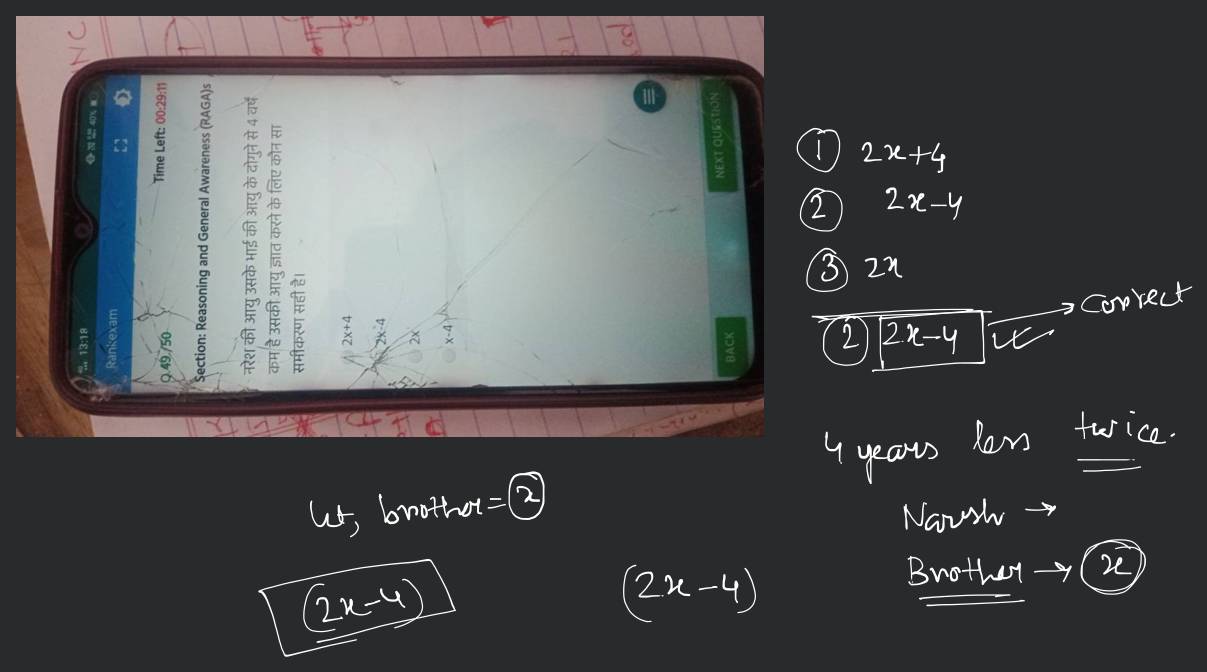 13:18
40%
Rankexam
Q.49 /50
Time Left: 00:29:11
Section: Reasoning and General Awareness (RAGA)s
नरेश की आयु उसके भाई की आयु के दोगुने से 4 वर्ष
कम है उसकी आयु ज्ञात करने के लिए कौन सा
समीकरण सही है।
2x+4
2x-4
2x
x-4
BACK
NEXT QUESTION
NC
1 2x+4
2 2x-4
3 2x
2 2x-4 correct
4 years less twice.
Naresh →
Brother → x
let, brother = x
(2x-4)
(2x-4)